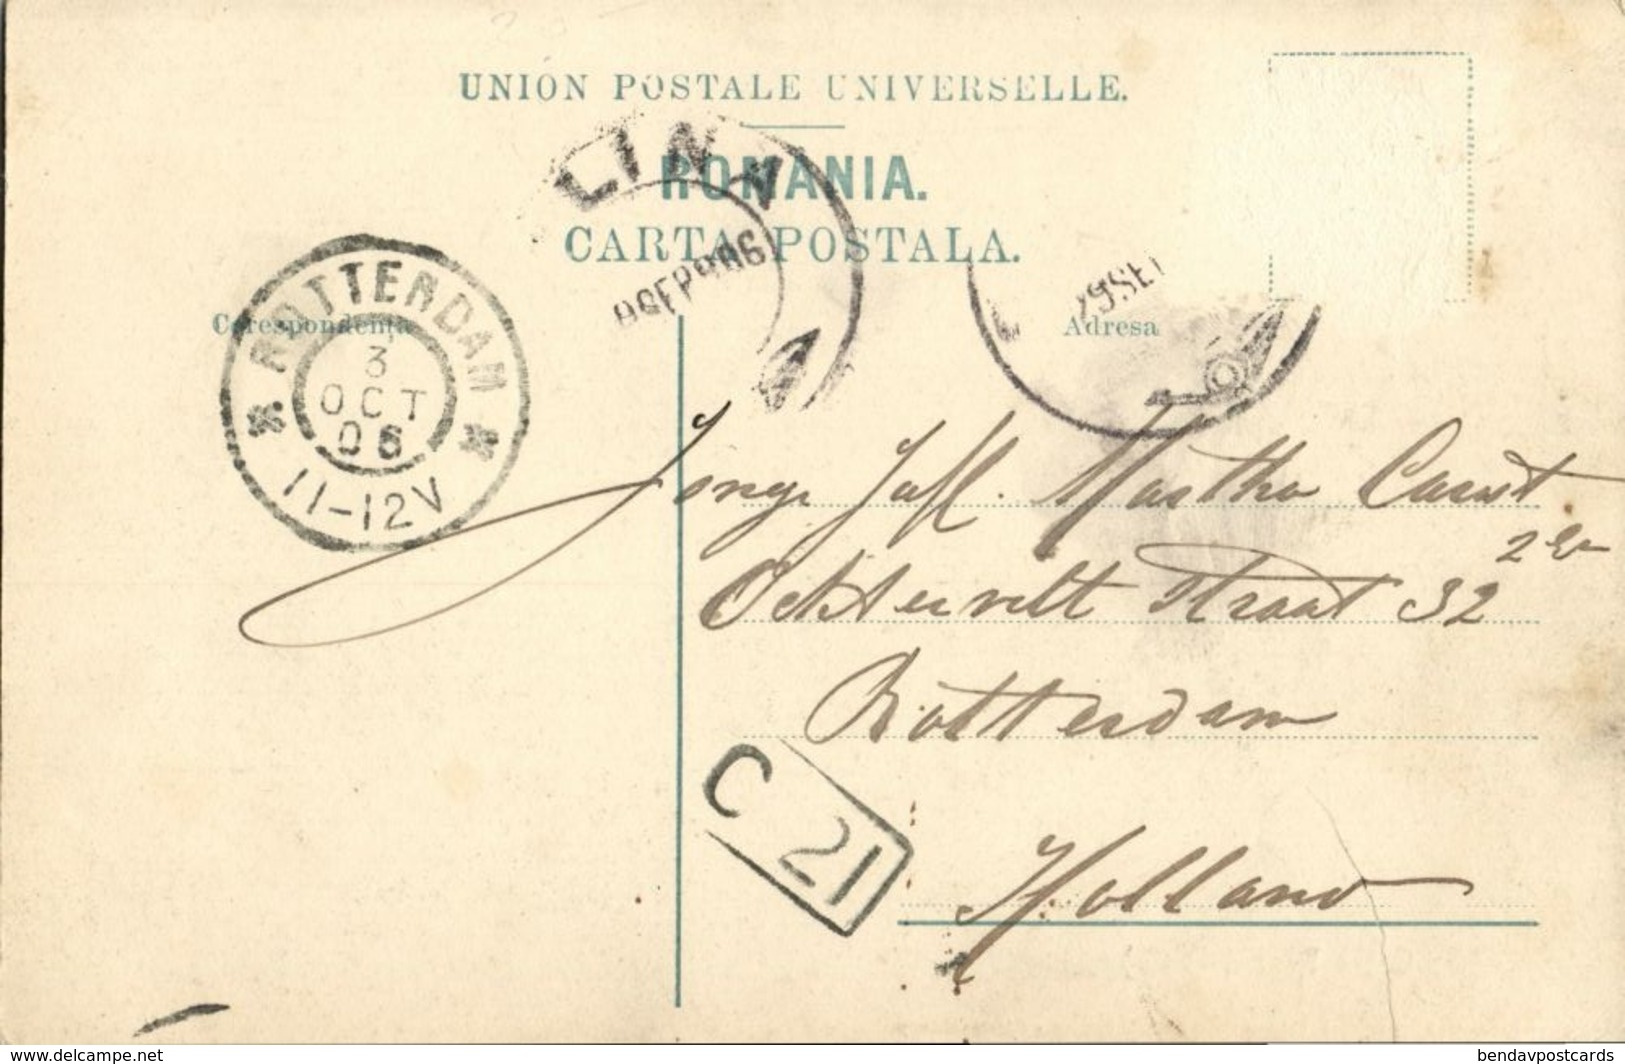 UNION POSTALE UNIVERSELLE.
ROMANIA.
CARTA POSTALA.
LIN
SEP 906
29 SE
Corespondența
Adresa
ROTTERDAM
3
OCT
06
11-12V
Jonge Juff. Martha
Ochtervelt Straat 32
Rotterdam
Holland
C 21
www.delcampe.net
bendavpostcards